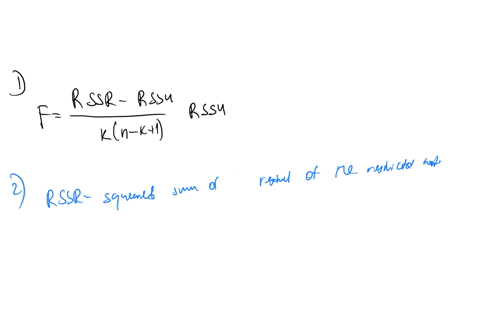 1)
F = (RSSR - RSSU) / (K(n-K+1)) RSSU
2) RSSR - squared sum of residual of the